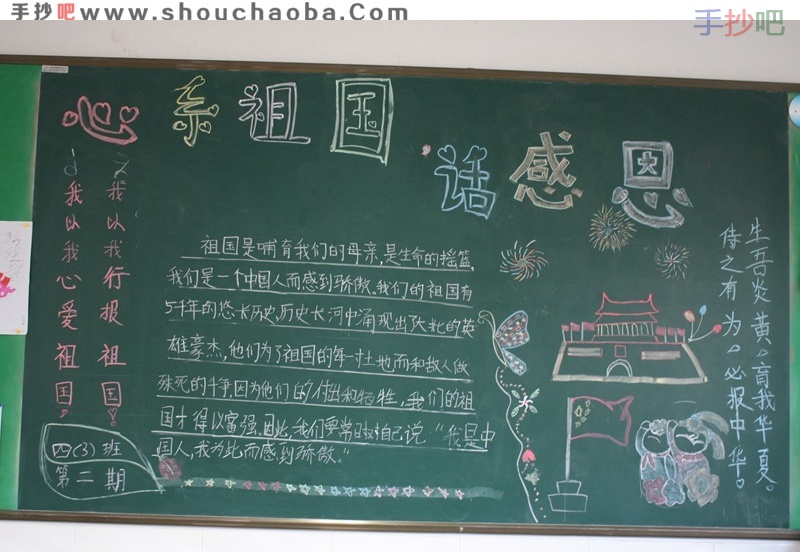 手抄吧 www.shouchaoba.com
手抄吧
心系祖国
话感恩
我以我心爱祖国。
我以我行报祖国!
祖国是哺育我们的母亲,是生命的摇篮,
我们是一个中国人而感到骄傲、我们的祖国有
5千年的悠长历史,历史长河中涌现出了
雄豪杰,他们为了祖国的每一寸土地而和敌人做
殊死的斗争,因为他们的付出和牺牲,我们的祖
国才得以富强,因此,我们要常对自己说:“我是中
国人,我为此而感到骄傲。”
生吾炎黄。育我华夏。
待之有为。必报中华。
四(3)班
第二期